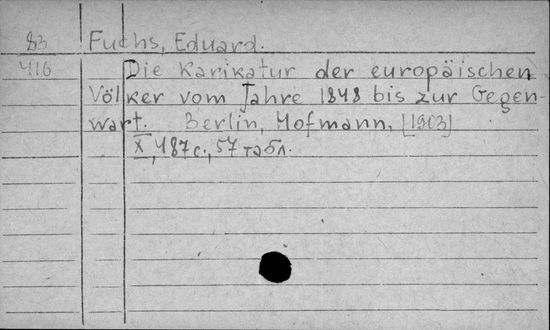 83 Fuchs, Eduard.
416 Die Karikatur der europäischen
Völker vom Jahre 1848 bis zur Gegen-
wart. Berlin, Hofmann, [1903]
X, 487 с., 57 табл.